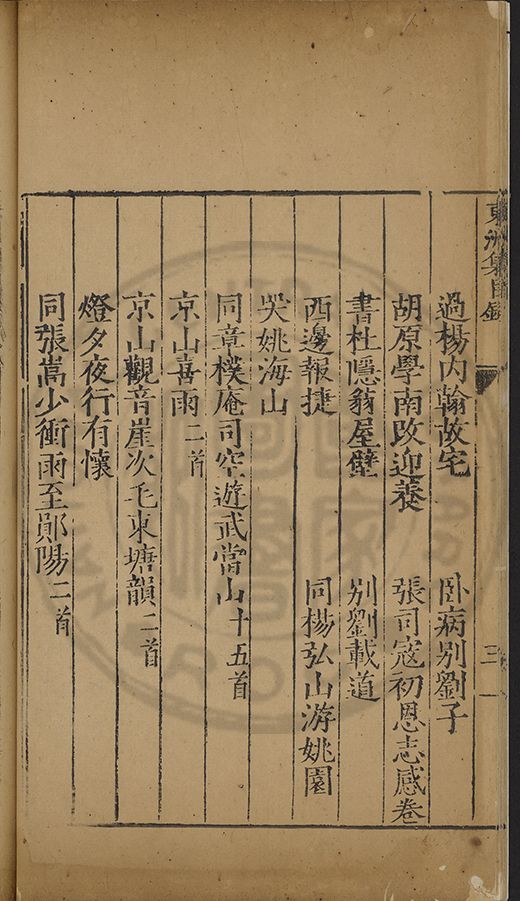 東洲集目錄
三
過楊內翰故宅 臥病別劉子
胡原學南改迎養 張司寇初恩志感卷
書杜隱翁屋壁 別劉載道
西邊報捷 同楊弘山游姚園
哭姚海山
同章樸庵司空遊武當山十五首
京山喜雨二首
京山觀音崖次毛東塘韻二首
燈夕夜行有懷
同張嵩少衝雨至鄖陽二首